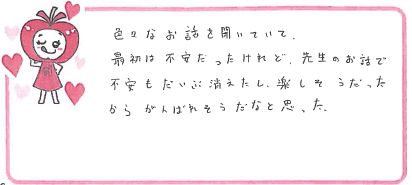 色々なお話を聞いていて、
最初は不安だったけれど、先生のお話で
不安もだいぶ消えたし、楽しそうだった
からがんばれそうだなと思った。